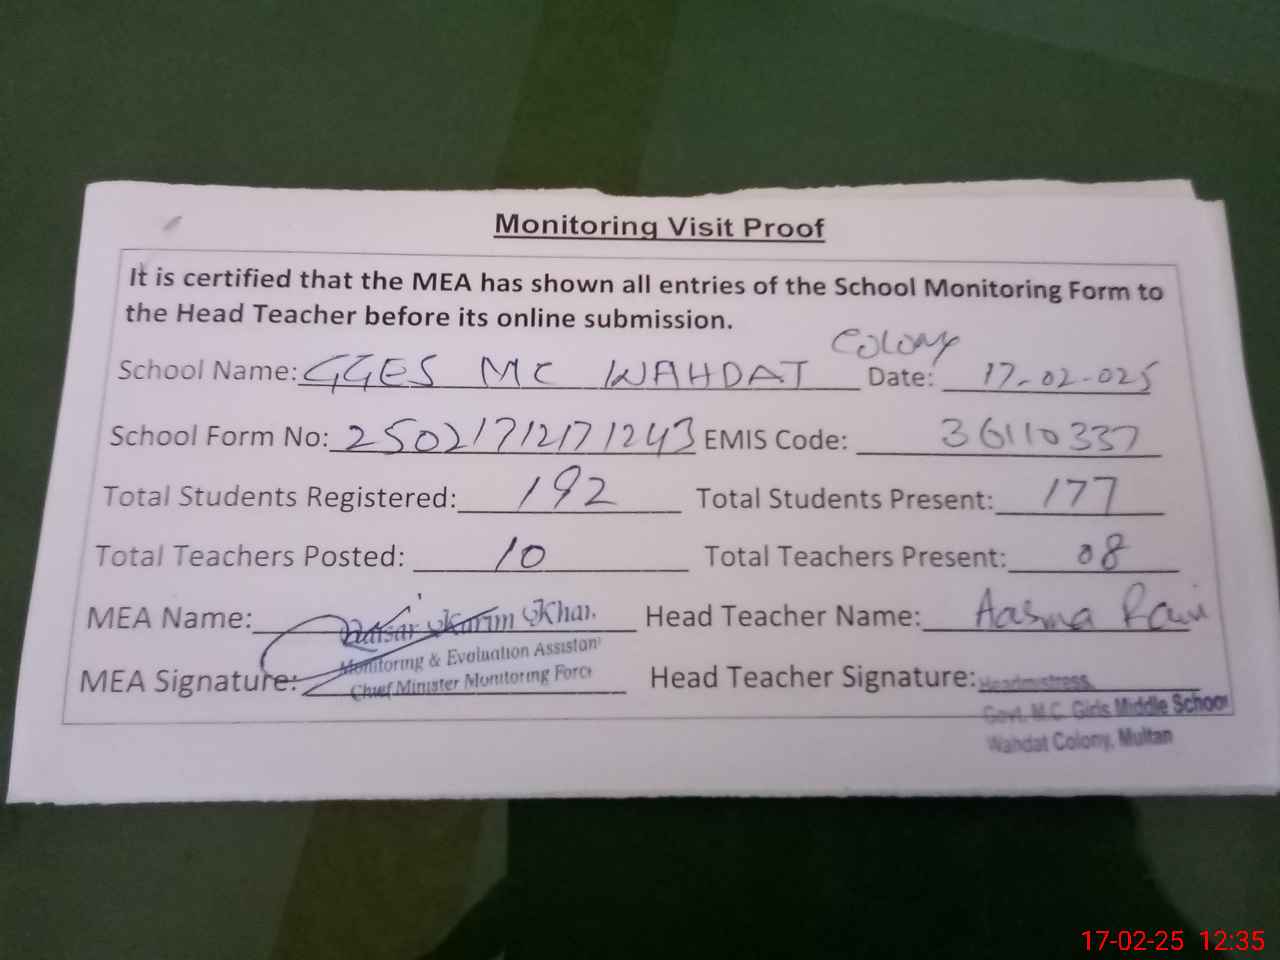 Monitoring Visit Proof
It is certified that the MEA has shown all entries of the School Monitoring Form to
the Head Teacher before its online submission.
School Name: GGES MC WAHDAT Colony Date: 17-02-025
School Form No: 25021712171243 EMIS Code: 36110337
Total Students Registered: 192 Total Students Present: 177
Total Teachers Posted: 10 Total Teachers Present: 08
MEA Name: Qaisar Karim Khan Head Teacher Name: Aasma
Monitoring & Evaluation Assistant
MEA Signature: Chief Minister Monitoring Force Head Teacher Signature: Headmistress
Govt. M.C. Girls Middle School
Wahdat Colony, Multan
17-02-25 12:35